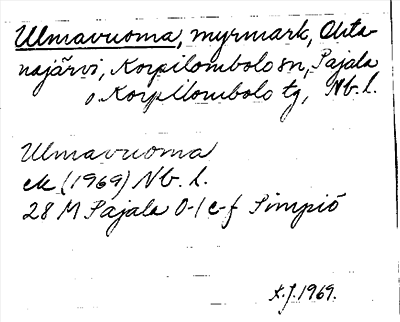 Ulmavuoma, myrmark, Ohta-
najärvi, Korpilombolo sn, Pajala
o Korpilombolo tg, Nb. l.
Ulmavuoma
ek (1969) Nb. l.
28 M Pajala 0-1 e-f Pimpiö
1969.